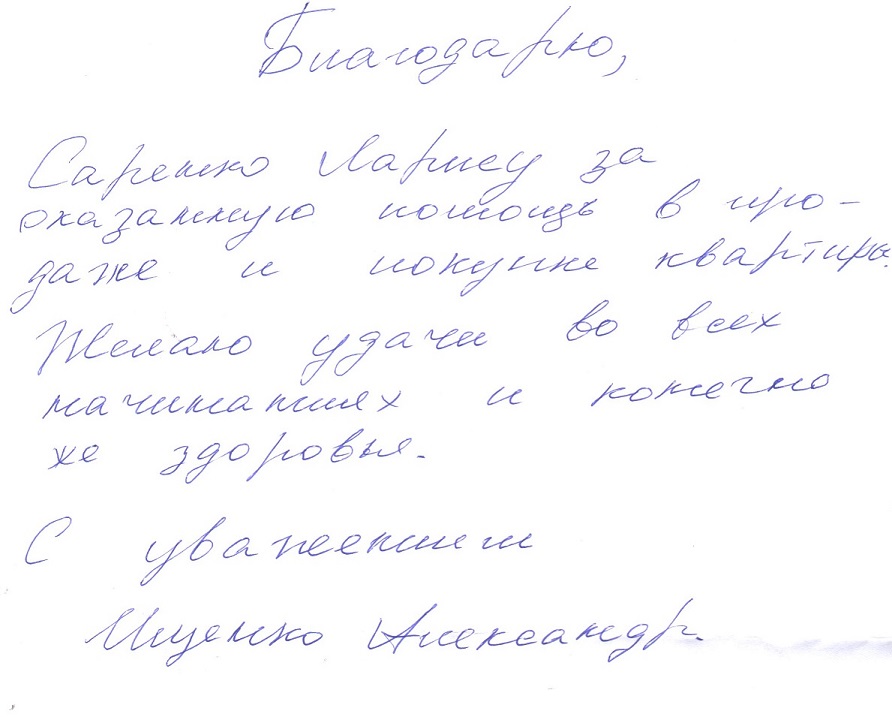 Благодарю,
Саренко Ларису за
оказанную помощь в про-
даже и покупке квартиры.
Желаю удачи во всех
начинаниях и конечно
же здоровья.
С уважением
Ищенко Александр.